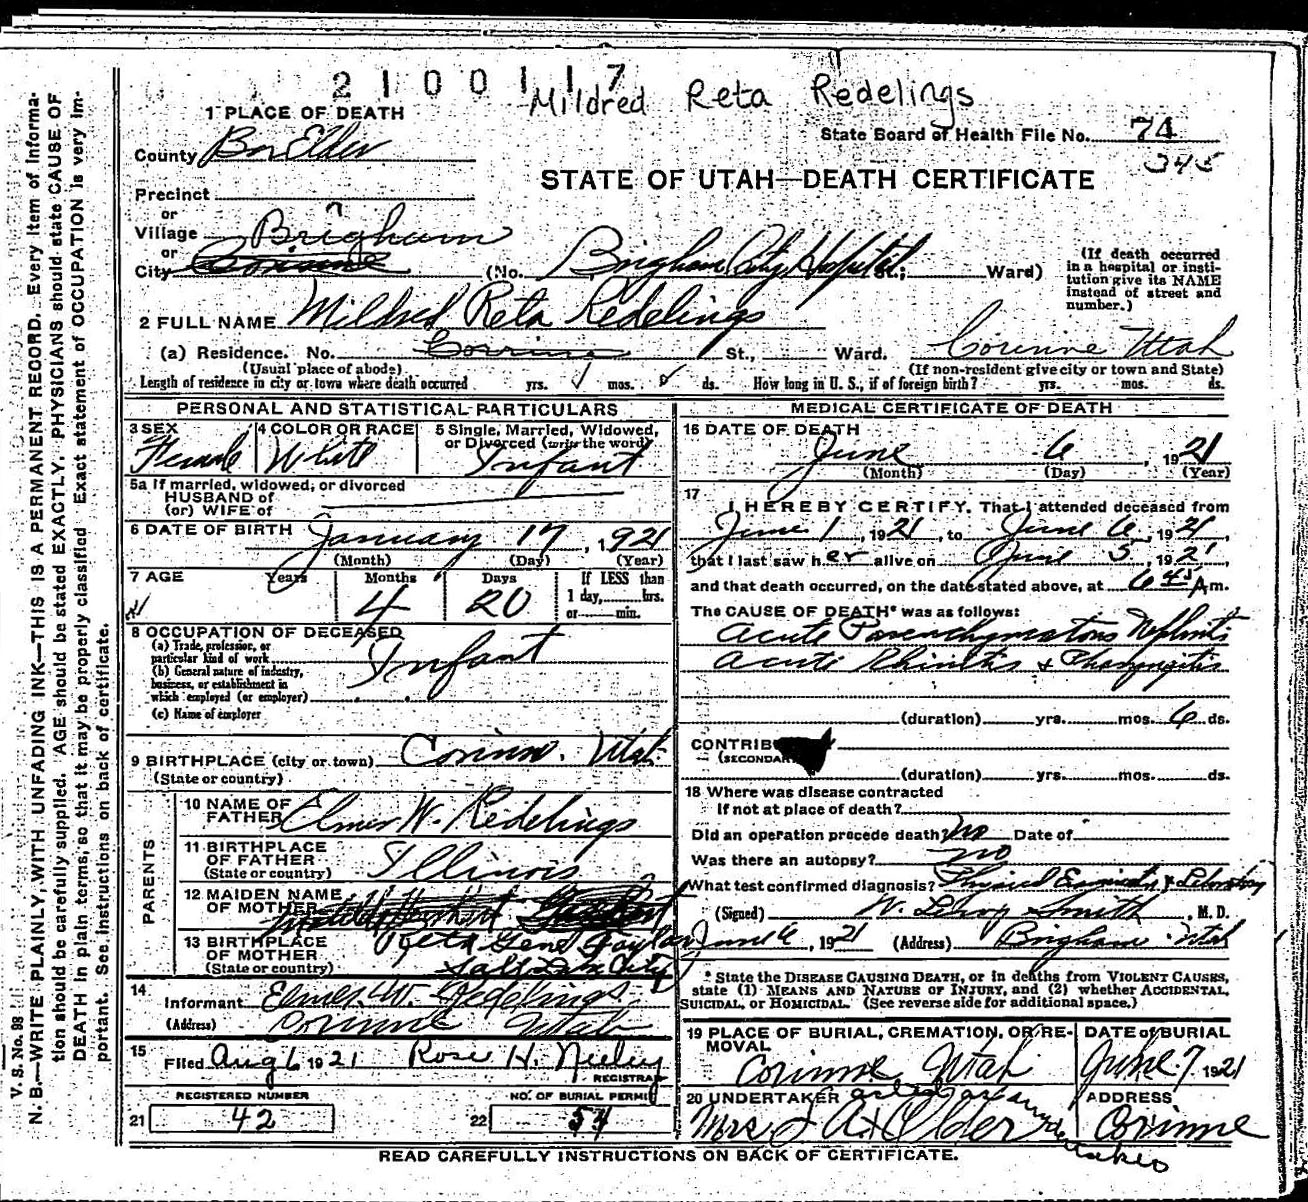 2 1 0 0 1 1 7
Mildred Reta Redelings
1 PLACE OF DEATH
State Board of Health File No. 74
345
County Box Elder
STATE OF UTAH—DEATH CERTIFICATE
Precinct
or
Village Brigham
or
City Corinne (No. Brigham City Hospital St.; Ward)
(If death occurred in a hospital or insti-
tution give its NAME
instead of street and
number.)
2 FULL NAME Mildred Reta Redelings
(a) Residence. No. Corinne St., Ward. Corinne Utah
(Usual place of abode) (If non-resident give city or town and State)
Length of residence in city or town where death occurred yrs. mos. ds. How long in U. S., if of foreign birth? yrs. mos. ds.
PERSONAL AND STATISTICAL PARTICULARS
3 SEX Female
4 COLOR OR RACE White
5 Single, Married, Widowed,
or Divorced (write the word) Infant
5a If married, widowed, or divorced
HUSBAND of
(or) WIFE of
6 DATE OF BIRTH January 17, 1921
(Month) (Day) (Year)
7 AGE Years Months Days If LESS than
4 20 1 day, hrs.
or min.
8 OCCUPATION OF DECEASED
(a) Trade, profession, or
particular kind of work Infant
(b) General nature of industry,
business, or establishment in
which employed (or employer)
(c) Name of employer
9 BIRTHPLACE (city or town) Corinne, Utah
(State or country)
PARENTS
10 NAME OF
FATHER Elmer W. Redelings
11 BIRTHPLACE
OF FATHER Illinois
(State or country)
12 MAIDEN NAME
OF MOTHER
Reta Gene Taylor
13 BIRTHPLACE
OF MOTHER
(State or country) Salt Lake City
14
Informant Elmer W. Redelings
(Address) Corinne Utah
15
Filed Aug 6 1921 Rose H. Neeley
REGISTRAR
REGISTERED NUMBER NO. OF BURIAL PERMIT
21 42 22 54
MEDICAL CERTIFICATE OF DEATH
16 DATE OF DEATH
June 6, 1921
(Month) (Day) (Year)
17
I HEREBY CERTIFY, That I attended deceased from
June 1, 1921, to June 6, 1921
that I last saw her alive on June 5, 1921
and that death occurred, on the date stated above, at 6 45 A m.
The CAUSE OF DEATH* was as follows:
Acute Parenchymatous Nephritis
Acute Rhinitis & Pharyngitis
(duration) yrs. mos. 6 ds.
CONTRIB
(SECONDAR
(duration) yrs. mos. ds.
18 Where was disease contracted
if not at place of death?
Did an operation precede death? No Date of
Was there an autopsy? no
What test confirmed diagnosis? Physical Examination & Laboratory
(Signed) W. Leroy Smith, M. D.
June 6, 1921 (Address) Brigham Utah
* State the DISEASE CAUSING DEATH, or in deaths from VIOLENT CAUSES,
state (1) MEANS AND NATURE OF INJURY, and (2) whether ACCIDENTAL,
SUICIDAL, or HOMICIDAL. (See reverse side for additional space.)
19 PLACE OF BURIAL, CREMATION, OR RE-
MOVAL
Corinne Utah
DATE of BURIAL
June 7 1921
20 UNDERTAKER
Mrs J A Older
ADDRESS
Corinne
READ CAREFULLY INSTRUCTIONS ON BACK OF CERTIFICATE.
V. S. No. 98
N. B.—WRITE PLAINLY, WITH UNFADING INK—THIS IS A PERMANENT RECORD. Every item of informa-
tion should be carefully supplied. AGE should be stated EXACTLY. PHYSICIANS should state CAUSE OF
DEATH in plain terms, so that it may be properly classified. Exact statement of OCCUPATION is very im-
portant. See instructions on back of certificate.